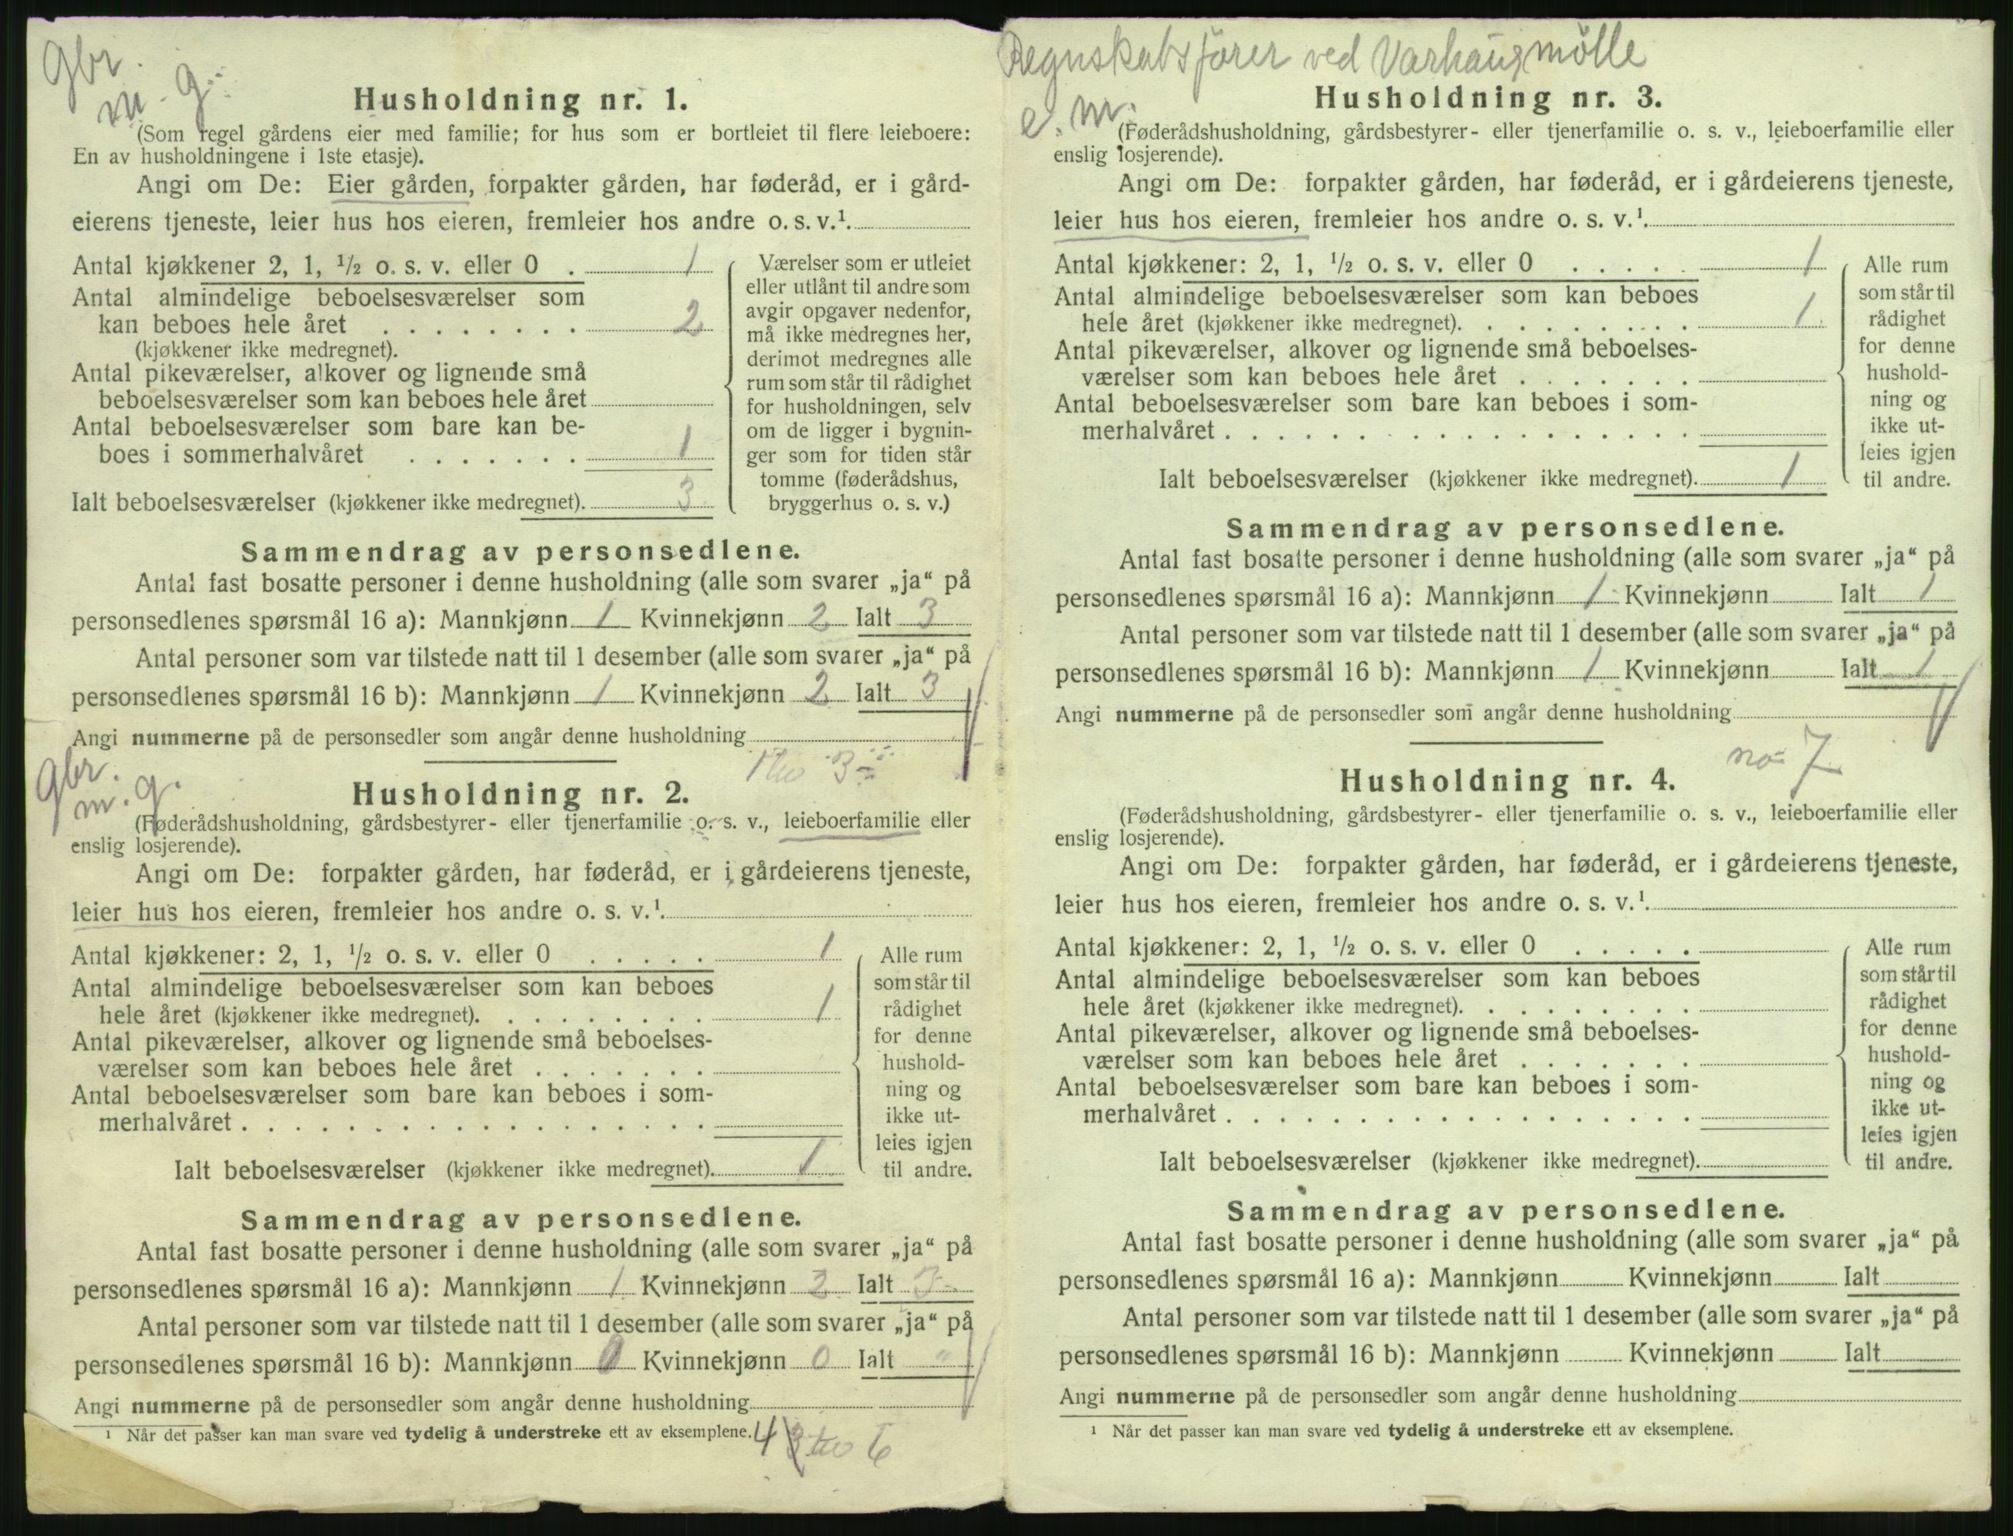 Gbr.
m. g.
Husholdning nr. 1.
(Som regel gårdens eier med familie; for hus som er bortleiet til flere leieboere:
En av husholdningene i 1ste etasje).
Angi om De: Eier gården, forpakter gården, har føderåd, er i gård-
eierens tjeneste, leier hus hos eieren, fremleier hos andre o. s. v.¹
Antal kjøkkener 2, 1, ½ o. s. v. eller 0 . 1
Antal almindelige beboelsesværelser som
kan beboes hele året . . . . . . . . 2
(kjøkkener ikke medregnet).
Antal pikeværelser, alkover og lignende små
beboelsesværelser som kan beboes hele året
Antal beboelsesværelser som bare kan be-
boes i sommerhalvåret . . . . . . . 1
Ialt beboelsesværelser (kjøkkener ikke medregnet). 3
Værelser som er utleiet
eller utlånt til andre som
avgir opgaver nedenfor,
må ikke medregnes her,
derimot medregnes alle
rum som står til rådighet
for husholdningen, selv
om de ligger i bygnin-
ger som for tiden står
tomme (føderådshus,
bryggerhus o. s. v.)
Sammendrag av personsedlene.
Antal fast bosatte personer i denne husholdning (alle som svarer „ja“ på
personsedlenes spørsmål 16 a): Mannkjønn 1 Kvinnekjønn 2 Ialt 3
Antal personer som var tilstede natt til 1 desember (alle som svarer „ja“ på
personsedlenes spørsmål 16 b): Mannkjønn 1 Kvinnekjønn 2 Ialt 3
Angi nummerne på de personsedler som angår denne husholdning
1 3
Gbr.
m. g.
Husholdning nr. 2.
(Føderådshusholdning, gårdsbestyrer- eller tjenerfamilie o. s. v., leieboerfamilie eller
enslig losjerende).
Angi om De: forpakter gården, har føderåd, er i gårdeierens tjeneste,
leier hus hos eieren, fremleier hos andre o. s. v.¹
Antal kjøkkener: 2, 1, ½ o. s. v. eller 0 . . . . . 1
Antal almindelige beboelsesværelser som kan beboes
hele året (kjøkkener ikke medregnet). . . . . . . . . 1
Antal pikeværelser, alkover og lignende små beboelses-
værelser som kan beboes hele året . . . . . . .
Antal beboelsesværelser som bare kan beboes i som-
merhalvåret . . . . . . . . . . . . . . . . . .
Ialt beboelsesværelser (kjøkkener ikke medregnet). 1
Alle rum
som står til
rådighet
for denne
hushold-
ning og
ikke ut-
leies igjen
til andre.
Sammendrag av personsedlene.
Antal fast bosatte personer i denne husholdning (alle som svarer „ja“ på
personsedlenes spørsmål 16 a): Mannkjønn 1 Kvinnekjønn 2 Ialt 3
Antal personer som var tilstede natt til 1 desember (alle som svarer „ja“ på
personsedlenes spørsmål 16 b): Mannkjønn 0 Kvinnekjønn 0 Ialt "
Angi nummerne på de personsedler som angår denne husholdning
¹ Når det passer kan man svare ved tydelig å understreke ett av eksemplene.
4 6
Regnskabsfører ved Varhaug mølle
e. m.
Husholdning nr. 3.
(Føderådshusholdning, gårdsbestyrer- eller tjenerfamilie o. s. v., leieboerfamilie eller
enslig losjerende).
Angi om De: forpakter gården, har føderåd, er i gårdeierens tjeneste,
leier hus hos eieren, fremleier hos andre o. s. v.¹
Antal kjøkkener: 2, 1, ½ o. s. v. eller 0 . . . . . 1
Antal almindelige beboelsesværelser som kan beboes
hele året (kjøkkener ikke medregnet). . . . . . . . . 1
Antal pikeværelser, alkover og lignende små beboelses-
værelser som kan beboes hele året . . . . . . .
Antal beboelsesværelser som bare kan beboes i som-
merhalvåret . . . . . . . . . . . . . . . . . .
Ialt beboelsesværelser (kjøkkener ikke medregnet). 1
Alle rum
som står til
rådighet
for denne
hushold-
ning og
ikke ut-
leies igjen
til andre.
Sammendrag av personsedlene.
Antal fast bosatte personer i denne husholdning (alle som svarer „ja“ på
personsedlenes spørsmål 16 a): Mannkjønn 1 Kvinnekjønn Ialt 1
Antal personer som var tilstede natt til 1 desember (alle som svarer „ja“ på
personsedlenes spørsmål 16 b): Mannkjønn 1 Kvinnekjønn Ialt 1
Angi nummerne på de personsedler som angår denne husholdning
no 7
Husholdning nr. 4.
(Føderådshusholdning, gårdsbestyrer- eller tjenerfamilie o. s. v., leieboerfamilie eller
enslig losjerende).
Angi om De: forpakter gården, har føderåd, er i gårdeierens tjeneste,
leier hus hos eieren, fremleier hos andre o. s. v.¹
Antal kjøkkener: 2, 1, ½ o. s. v. eller 0 . . . . .
Antal almindelige beboelsesværelser som kan beboes
hele året (kjøkkener ikke medregnet). . . . . . . . .
Antal pikeværelser, alkover og lignende små beboelses-
værelser som kan beboes hele året . . . . . . .
Antal beboelsesværelser som bare kan beboes i som-
merhalvåret . . . . . . . . . . . . . . . . . .
Ialt beboelsesværelser (kjøkkener ikke medregnet).
Alle rum
som står til
rådighet
for denne
hushold-
ning og
ikke ut-
leies igjen
til andre.
Sammendrag av personsedlene.
Antal fast bosatte personer i denne husholdning (alle som svarer „ja“ på
personsedlenes spørsmål 16 a): Mannkjønn Kvinnekjønn Ialt
Antal personer som var tilstede natt til 1 desember (alle som svarer „ja“ på
personsedlenes spørsmål 16 b): Mannkjønn Kvinnekjønn Ialt
Angi nummerne på de personsedler som angår denne husholdning
¹ Når det passer kan man svare ved tydelig å understreke ett av eksemplene.